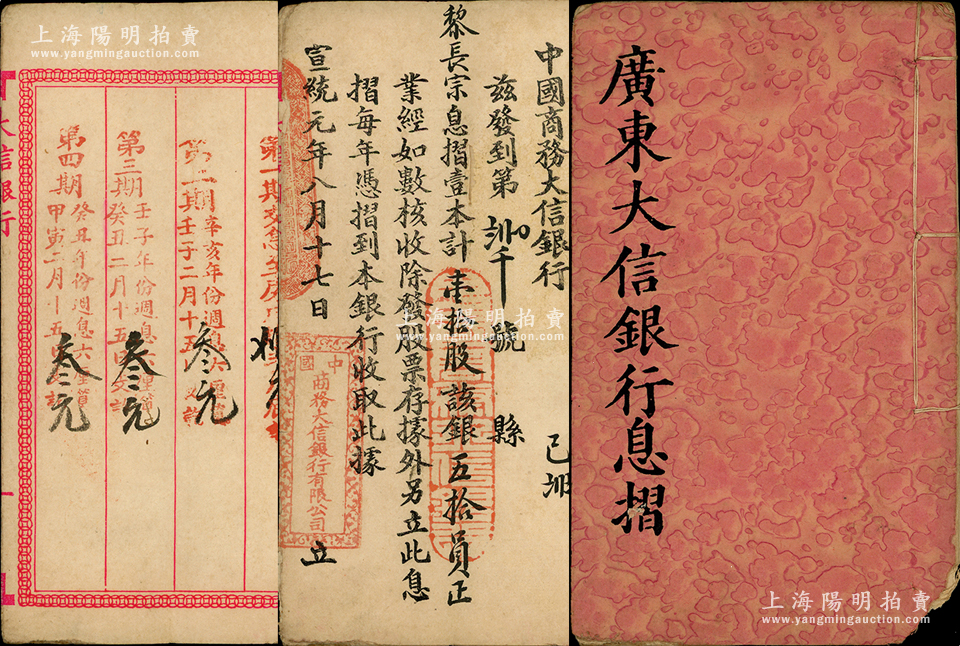 廣東大信銀行息摺
中國商務大信銀行
茲發到第 千 號 縣
黎長宗息摺壹本計壹拾股該銀五拾員正
業經如數核收除發股票存據外另立此息
摺每年憑摺到本銀行收取此據
宣統元年八月十七日 立
中國
商務大信銀行有限公司
第一期
第二期辛亥年份週息
壬子二月十五
叁元
第三期壬子年份週息
癸丑二月十五日
叁元
第四期癸丑年份週息六
甲寅二月十五
叁元
大信銀行
一
上海陽明拍賣
www.yangmingauction.com
上海陽明拍賣
www.yangmingauction.com
上海陽明拍賣
www.yangmingauction.com